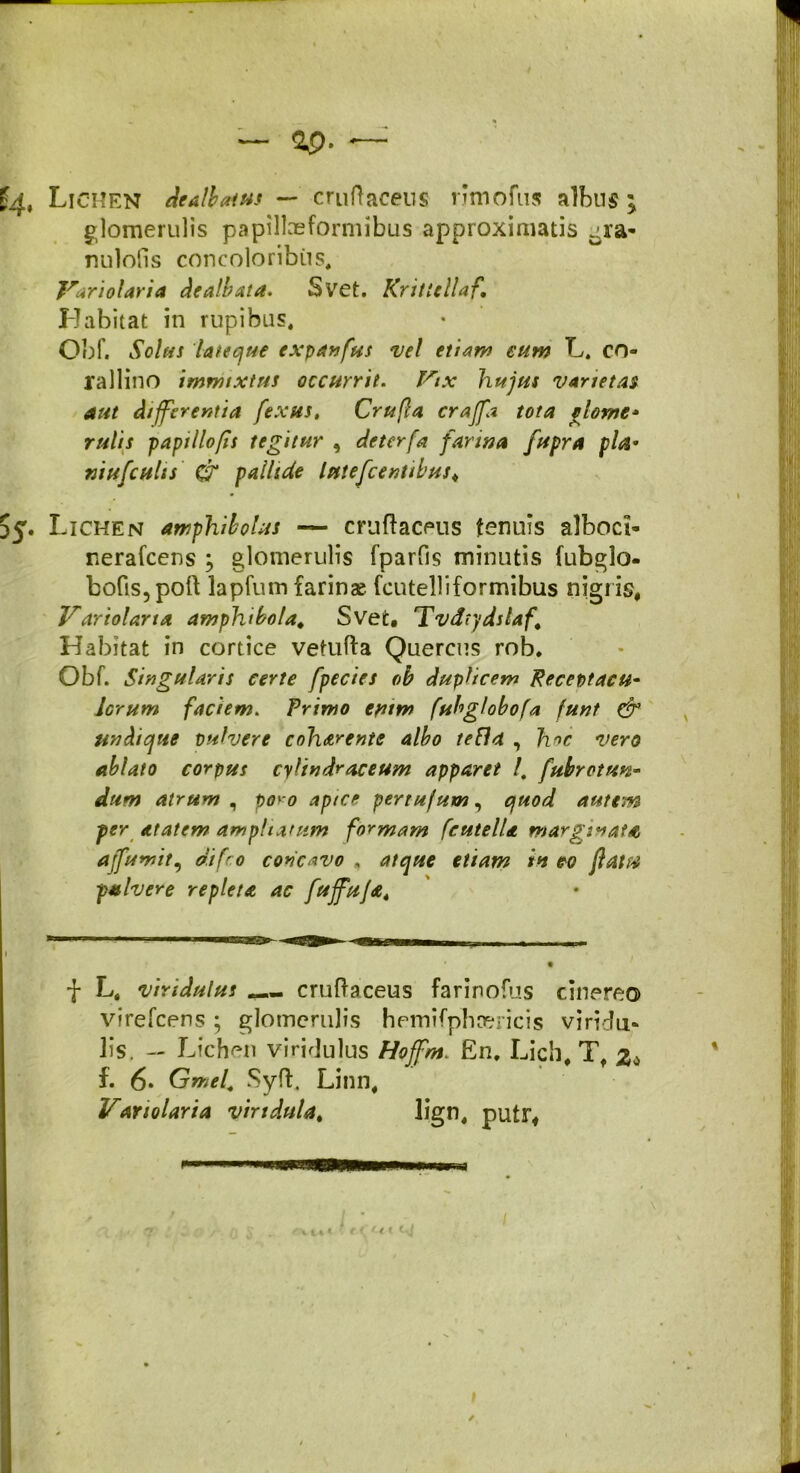 — 29. —
54, LICHEN dealbatus — cruſtaceus rimoſus albus;
glomerulis papillæformibus approximatis gra-
nuloſis concoloribus.
Variolaria dealbata. Svet. Krittellaf.
Habitat in rupibus.
Obſ. Solus lateque expanſus vel etiam cum L. co-
rallino immixtus occurrit. Vix hujus varietas
aut differentia ſexus. Cruſta craſſa tota glome-
rulis papilloſis tegitur, deterſa farina ſupra pla-
niuſculis & pallide luteſcentibus.
55. LICHEN amphibolus — cruſtaceus tenuis alboci-
neraſcens; glomerulis ſparſis minutis ſubglo-
boſis, poſt lapſum farinæ ſcutelliformibus nigris.
Variolaria amphibola. Svet. Tvdtydslaf.
Habitat in cortice vetuſta Quercus rob.
Obſ. Singularis certe ſpecies ob duplicem Receptacu-
lorum faciem. Primo enim ſubgloboſa ſunt &
undique pulvere cohærente albo tecta, hoc vero
ablato corpus cylindraceum apparet l. ſubrotun-
dum atrum, poro apice pertuſum, quod autem
per ætatem ampliatum formam ſcutellæ marginatæ
aſſumit, diſco concavo, atque etiam in eo ſtatu
pulvere repletæ ac ſuffuſæ.
† L. viridulus — cruſtaceus farinoſus cinereo
vireſcens; glomerulis hemiſphæricis viridu-
lis. — Lichen viridulus Hoffm. En. Lich. T. 2.
f. 6. Gmel. Syſt. Linn.
Variolaria viridula. lign. putr.